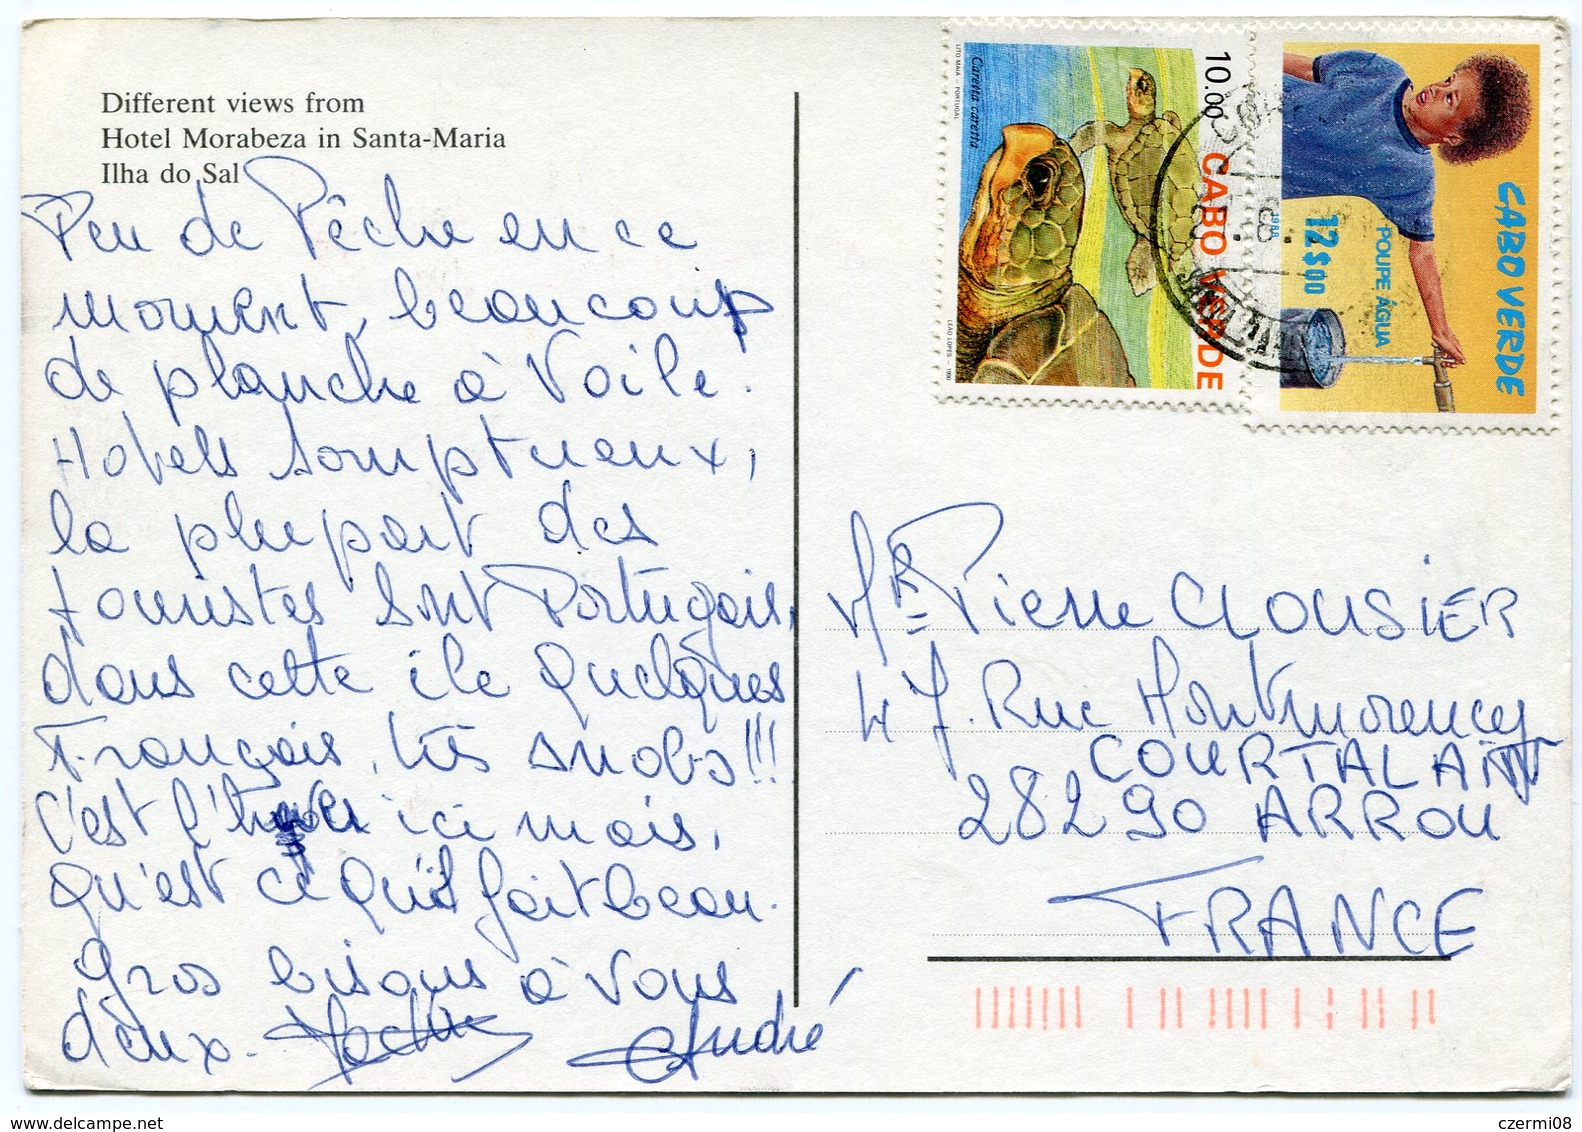 Different views from
Hotel Morabeza in Santa-Maria
Ilha do Sal
Peu de Pêche en ce
moment, beaucoup
de planche à Voile.
Hotels somptueux,
la plupart des
touristes sont Portugais,
dans cette ile quelques
Français, très snobs!!!
C'est l'hiver ici mais,
qu'est ce qu'il fait beau.
Gros bisous à vous
deux.
André
LITO MAIA - PORTUGAL
Caretta caretta
10.00
CABO VERDE
LEÃO LOPES - 1990
CABO VERDE
POUPE ÁGUA
12$00
1988
Mr Pierre CLOUSIER
47. Rue Montmorency
COURTALAIN
28290 ARROU
FRANCE
www.delcampe.net
czermi08